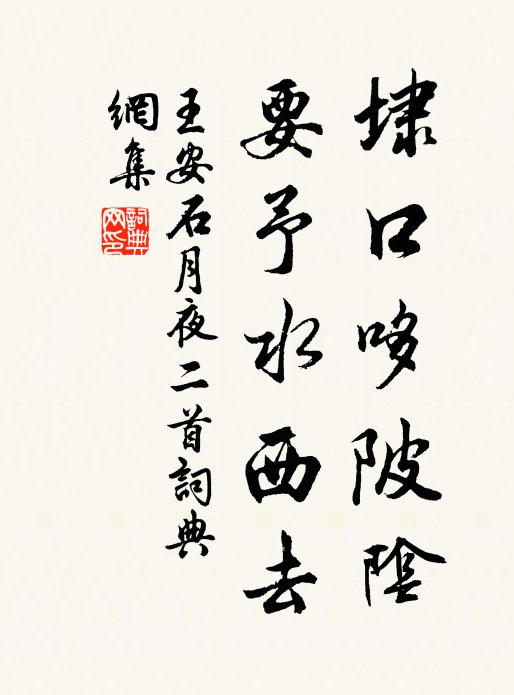 埭口哆陂陰
要予水西去
王安石月夜二首詞典
網集
詞典网印